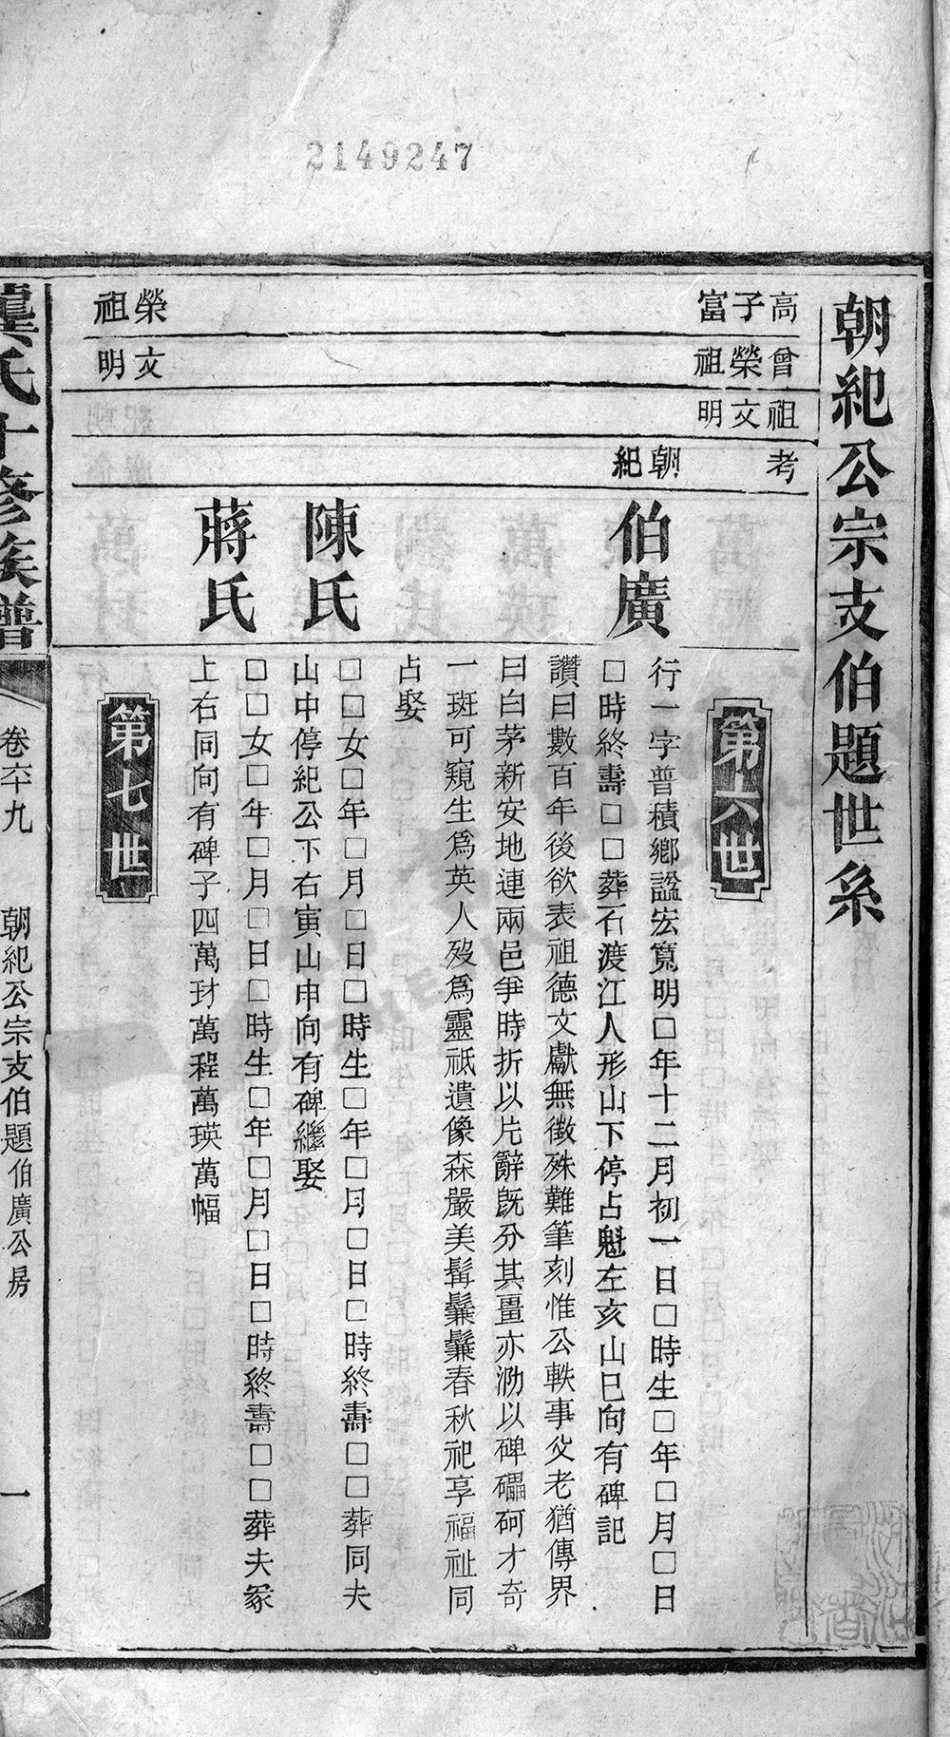 2149247
朝紀公宗支伯題世系
高 子富
曾 榮祖
祖 文明
考 朝紀
榮祖
文明
第六世
伯廣
行一字普積鄉謚宏寬明□年十二月初一日□時生□年□月□日
□時終壽□□葬石渡江人形山下停占魁左亥山巳向有碑記
讚曰數百年後欲表祖德文獻無徵殊難筆刻惟公軼事父老猶傳界
曰白茅新安地連兩邑爭時折以片辭旣分其畺亦泐以碑礧砢才奇
一斑可窺生爲英人歿爲靈祇遺像森嚴美髯鬑鬑春秋祀享福祉同
占娶
陳氏
□□女□年□月□日□時生□年□月□日□時終壽□□葬同夫
山中停紀公下右寅山申向有碑繼娶
蔣氏
□□女□年□月□日□時生□年□月□日□時終壽□□葬夫冢
上右同向有碑子四萬玨萬程萬瑛萬幅
第七世
龔氏十修族譜
卷六十九
朝紀公宗支伯題伯廣公房
一